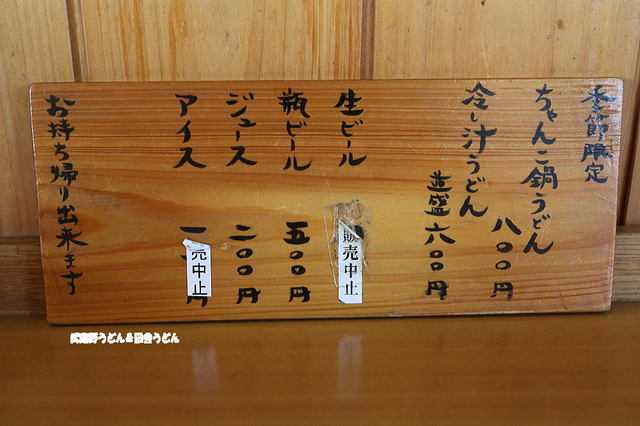 季節限定
ちゃんこ鍋うどん
八〇〇円
冷し汁うどん
並盛 六〇〇円
生ビール
販売中止
瓶ビール 五〇〇円
ジュース 二〇〇円
アイス
売中止
円
お持ち帰り出来ます
武蔵野うどん&田舎うどん